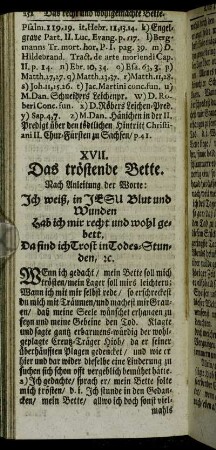 252 Das recht und wohlgemachte Bette.
Psalm. 119. 19. it. Hebr. 11,13.14. k) Engel-
grave Part. II. Luc. Evang. p. 117. l) Berg-
manns Tr. mort. hor, P. I. pag. 39. m) D.
Hildebrand. Tract. de arte moriendi Cap.
II. p. 14. n) Ebr. 10, 34. o) Esa. 63, 3. p)
Matth. 27, 27. q) Matth. 11,17. r) Matth. 11,28.
s) Joh. 11,15.26. t) Jac. Martini conc. fun. u)
M. Dan. Schneiders Leichenpr. w) D. Ro-
beri Conc. fun. x) D. Röbers Leichen-Pred.
y) Sap. 4,7. z) M. Dan. Hänichen in der II.
Predigt über den tödtlichen Hintritt Christi-
ani II. Chur-Fürsten zu Sachsen/ p. 41.
XVII.
Das tröstende Bette.
Nach Anleitung der Worte:
Ich weiß, in JESU Blut und
Wunden
Hab ich mir recht und wohl ge-
bett,
Da find ich Trost in Todes-Stun-
den, ꝛc.
Wenn ich gedacht/ mein Bette soll mich
trösten/ mein Lager soll mirs leichtern:
Wann ich mit mir selbst rede/ so erschreckest
du mich mit Träumen/ und machest mir Grau-
en/ daß meine Seele wünschet erhangen zu
seyn und meine Gebeine den Tod. Klagte
und sagte gantz erbarmens-würdig der wohl-
geplagte Creutz-Träger Hiob/ da er seiner
überhäufften Plagen gedencket/ und wie er
hier und dar wider dieselbe eine Linderung zu
suchen sich schon offt vergeblich bemühet hätte.
a) Ich gedachte/ sprach er/ mein Bette solte
mich trösten/ d. i. Ich stunde in den Gedan-
cken/ mein Bette/ allwo ich doch sonst viel-
mahls